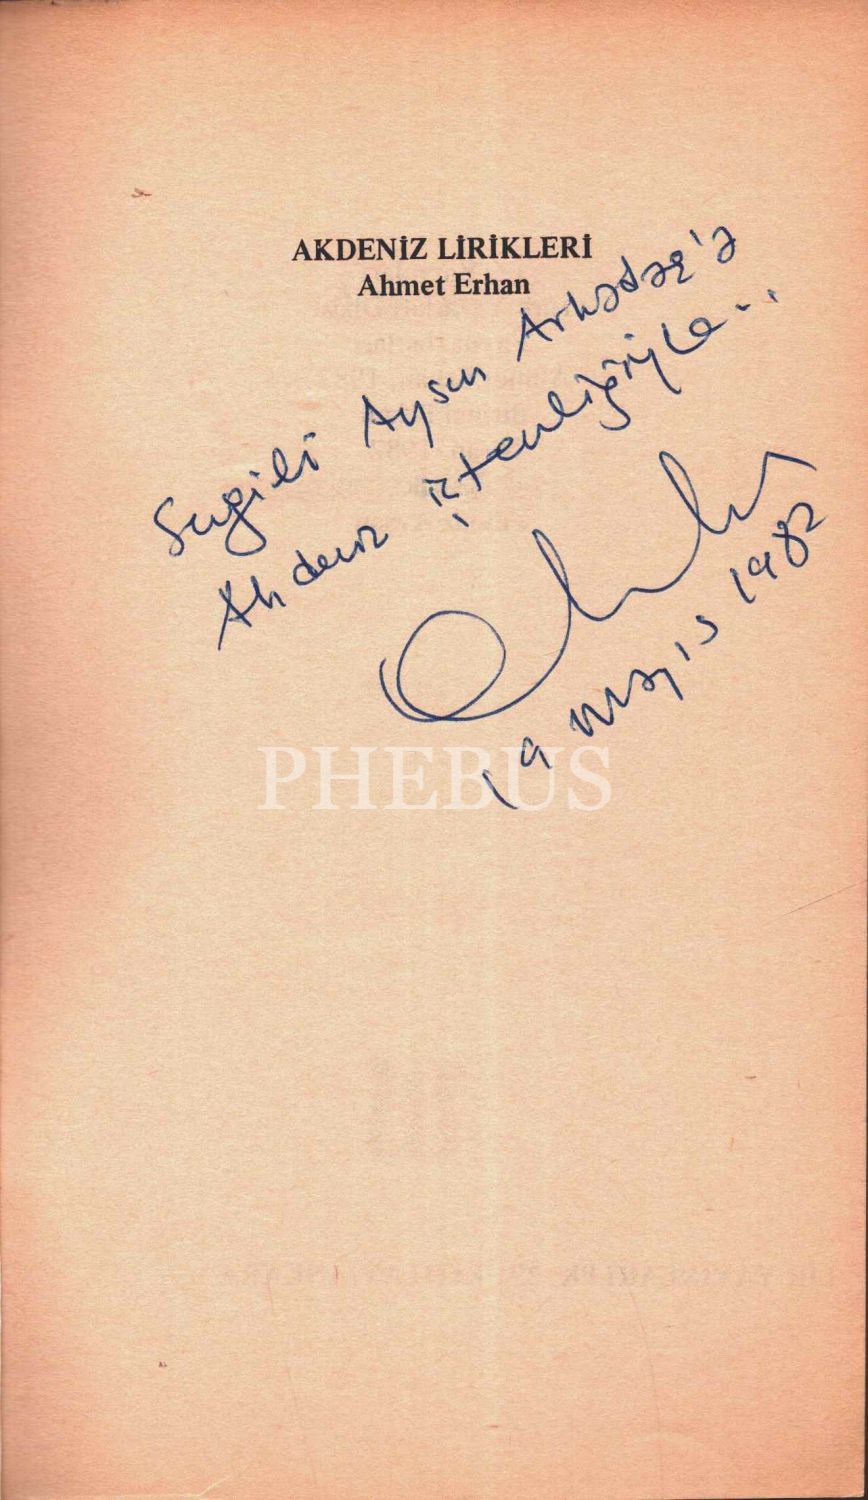 AKDENİZ LİRİKLERİ
Ahmet Erhan
Sevgili Aysun Arkadaş'a
Akdeniz içtenliğiyle...
19 Mayıs 1982
PHEBUS